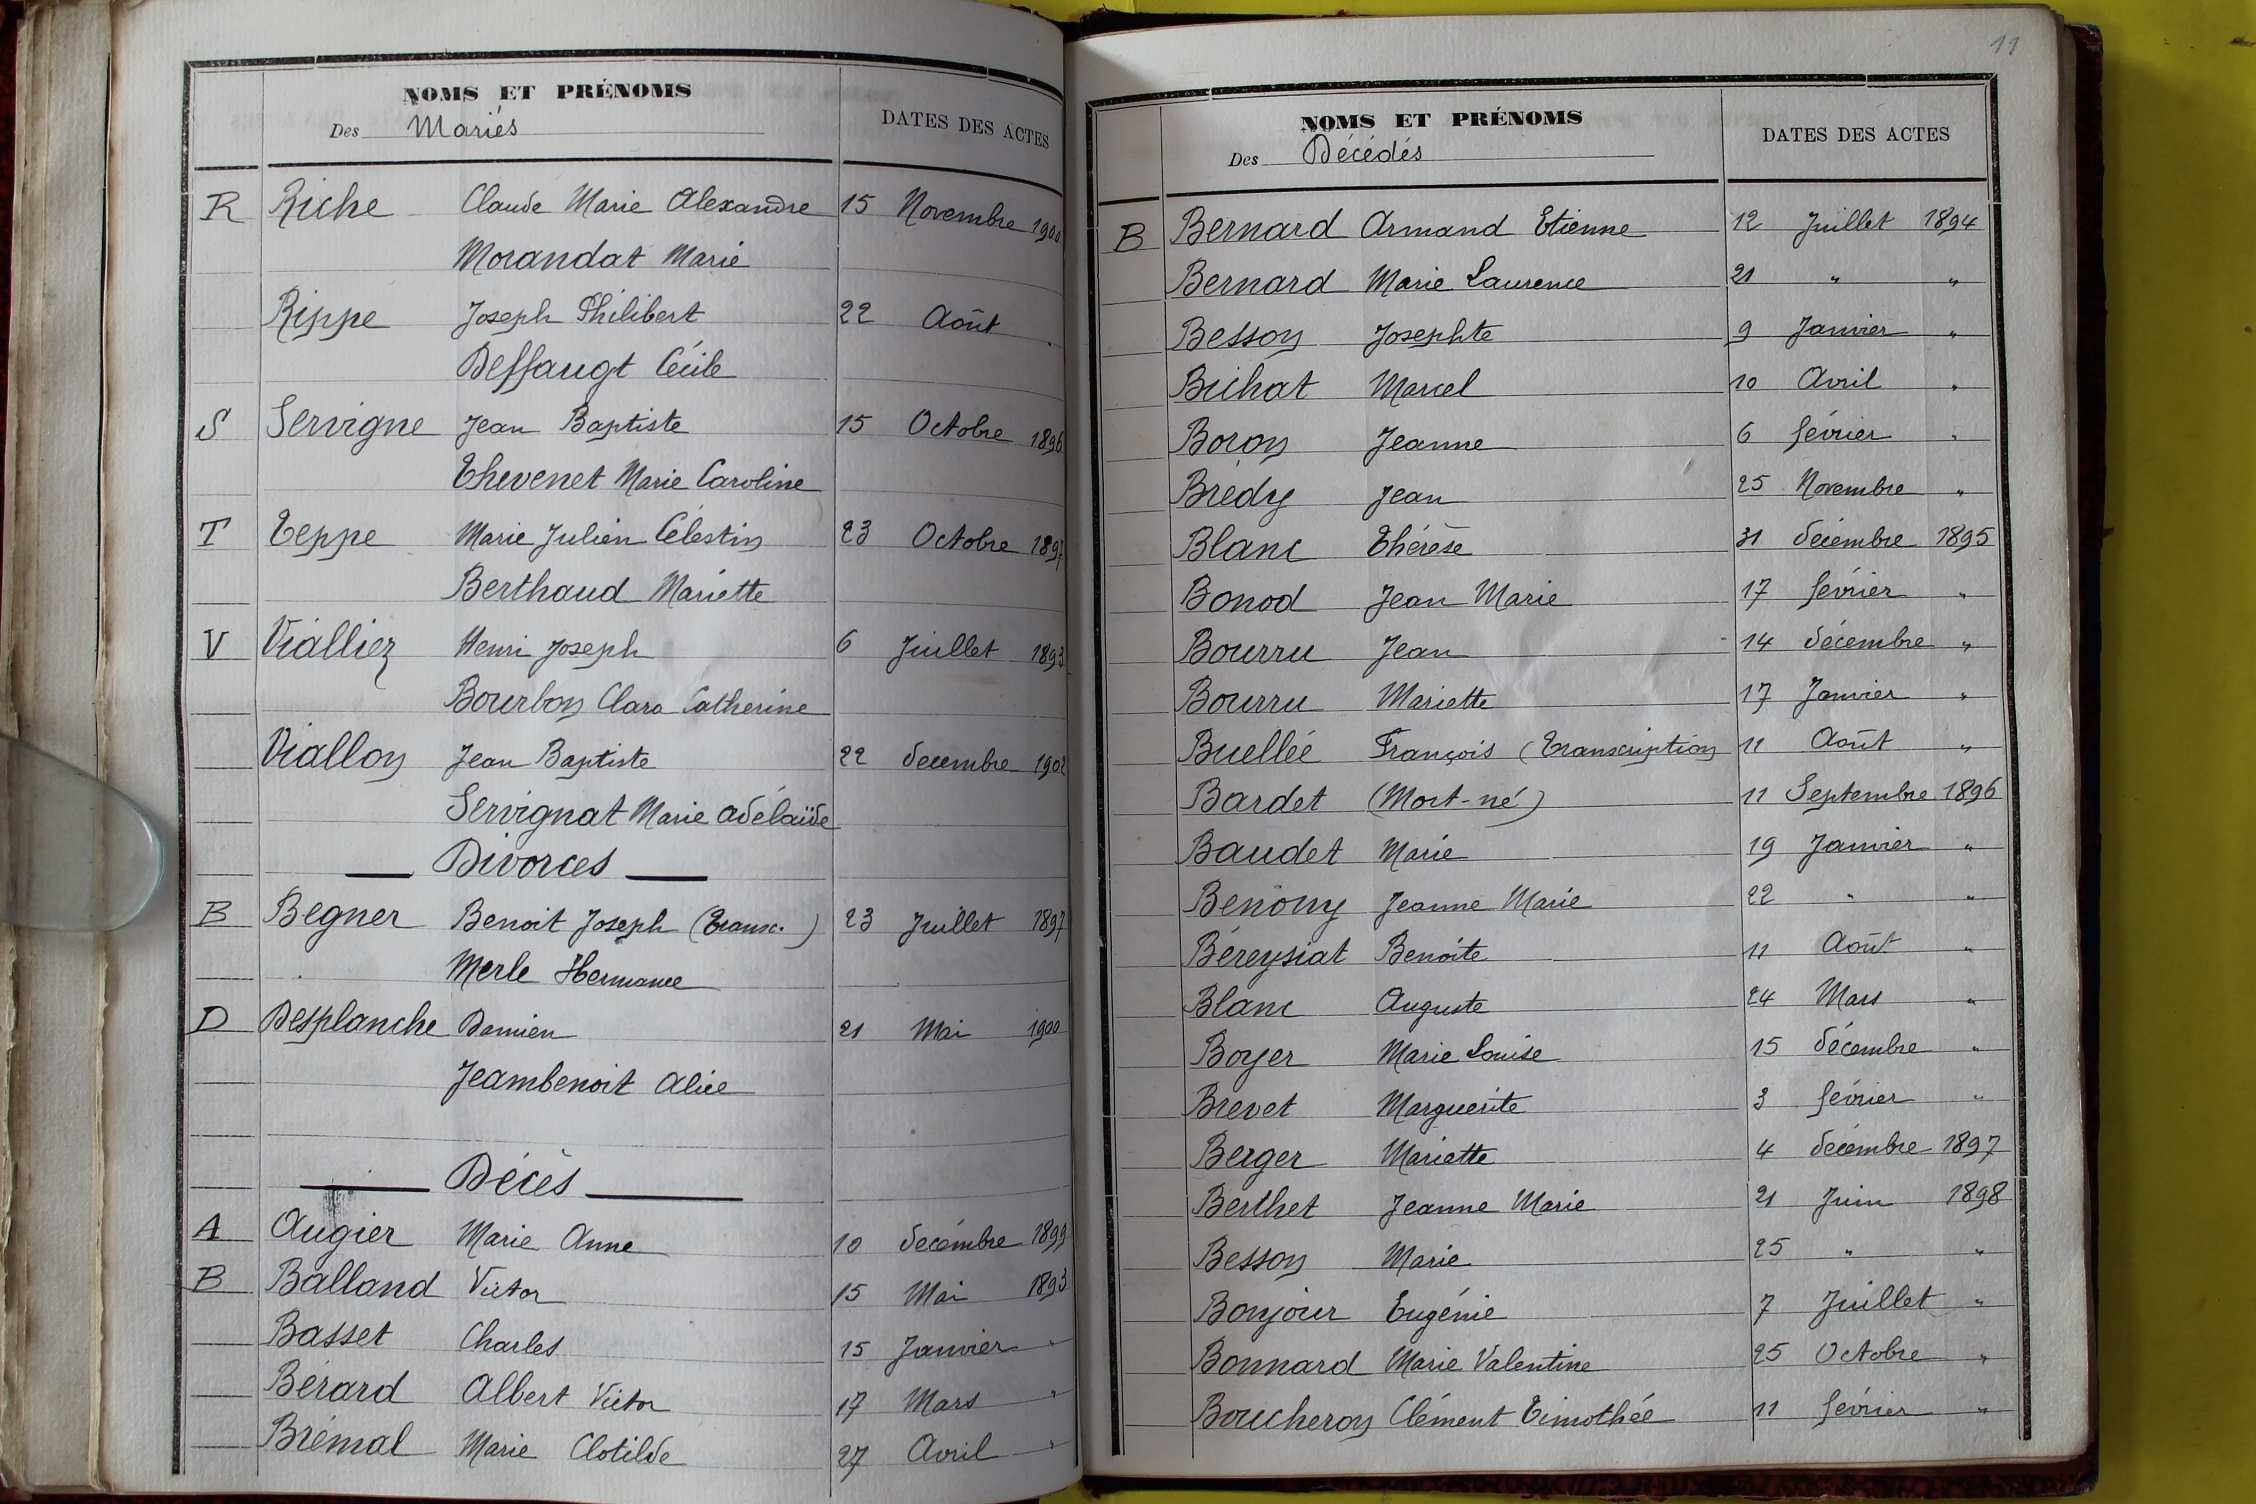 NOMS ET PRÉNOMS
Des Mariés
DATES DES ACTES
R Riche Claude Marie Alexandre 15 Novembre 1900
Morandat Marie
Rippe Joseph Philibert 22 Août "
Deffaugt Cécile
S Servigne Jean Baptiste 15 Octobre 1896
Thevenet Marie Caroline
T Teppe Marie Julien Célestin 23 Octobre 1897
Berthaud Mariette
V Vialliez Henri Joseph 6 Juillet 1893
Bourbon Clara Catherine
Viallon Jean Baptiste 22 decembre 1902
Servignat Marie adélaïde
Divorces
B Begner Benoit Joseph (Transc.) 23 Juillet 1897
Merle Hermance
D Desplanche Damien 21 Mai 1900
Jeambenoit Alice
Décès
A Augier Marie Anne 10 décembre 1899
B Balland Victor 15 Mai 1893
Basset Charles 15 Janvier "
Bérard Albert Victor 17 Mars "
Brémal Marie Clotilde 27 Avril "
11
NOMS ET PRÉNOMS
Des Décédés
DATES DES ACTES
B Bernard Armand Etienne 12 Juillet 1894
Bernard Marie Laurence 21 " "
Besson Josephte 9 Janvier "
Bichat Marcel 10 Avril "
Boron Jeanne 6 février "
Brédy Jean 25 Novembre "
Blanc Thérèse 31 décembre 1895
Bonod Jean Marie 17 février "
Bourru Jean 14 décembre "
Bourru Mariette 17 Janvier "
Buellée François (Transcription 11 Août "
Bardet (Mort-né) 11 Septembre 1896
Baudet Marie 19 Janvier "
Benony Jeanne Marie 22 " "
Béreysiat Benoite 11 Août "
Blanc Auguste 24 Mars "
Boyer Marie Louise 15 décembre "
Brevet Marguerite 3 février "
Berger Mariette 4 décembre 1897
Berthet Jeanne Marie 21 Juin 1898
Besson Marie 25 " "
Bonjour Eugénie 7 Juillet "
Bonnard Marie Valentine 25 Octobre "
Boucheron Clément Timothée 11 février "